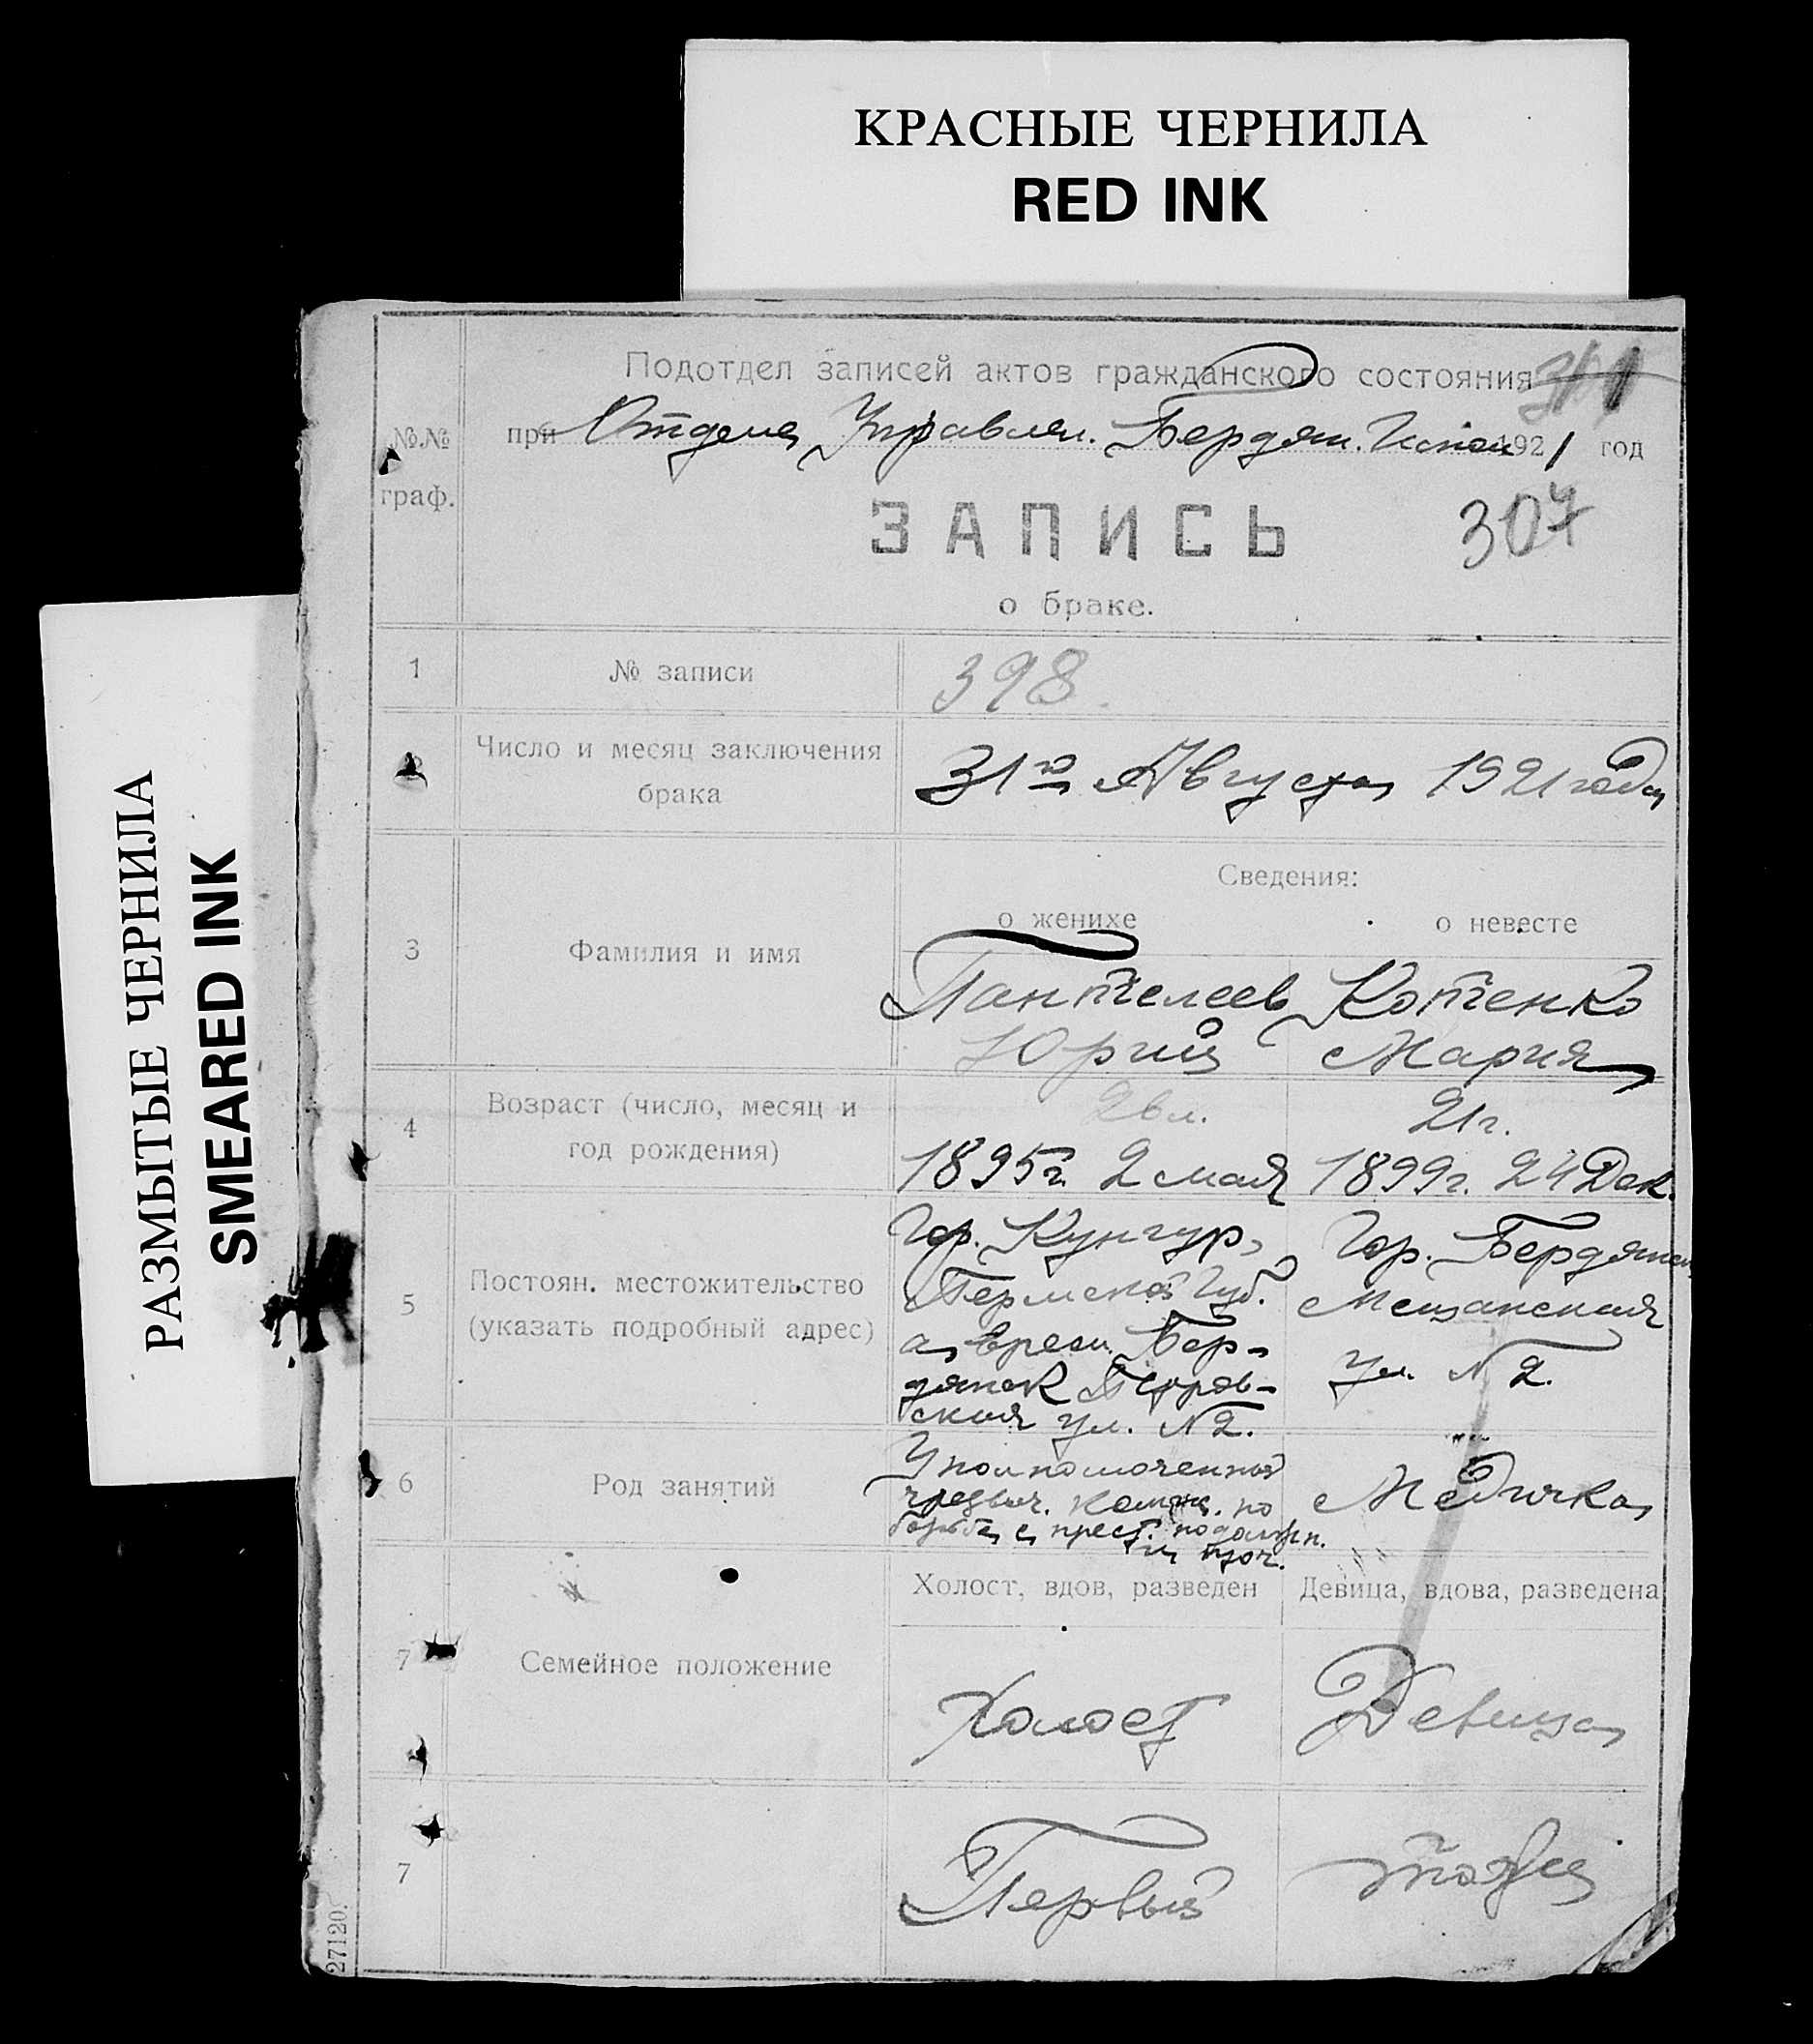 КРАСНЫЕ ЧЕРНИЛА
RED INK
РАЗМЫТЫЕ ЧЕРНИЛА
SMEARED INK
Подотдел записей актов гражданского состояния
№№ при Отдела Управлен. Бердян. Испол 1921 год
граф.
ЗАПИСЬ 307
о браке.
1 № записи 398.
2 Число и месяц заключения брака 31го Августа 1921 года
Сведения:
о женихе о невесте
3 Фамилия и имя
Пантелеев Котенко
Юрий Мария
4 Возраст (число, месяц и год рождения)
26 л. 21 г.
1895 г. 2 мая 1899 г. 24 Дек.
5 Постоян. местожительство (указать подробный адрес)
Гор. Кунгур, Гор. Бердянск
Пермской Губ. Мещанская
а врем. Бер- ул. N 2.
дянск
ская ул. N 2.
6 Род занятий
Уполномоченный Медичка
чрезвыч. комис. по
борьбе с прест. по должн.
и проч.
Холост, вдов, разведен Девица, вдова, разведена
7 Семейное положение
Холост Девица
7 Первый тоже
27120.